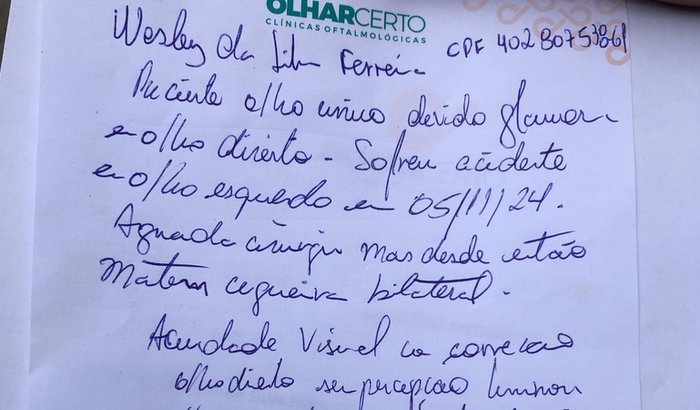 OLHARCERTO
CLÍNICAS OFTALMOLÓGICAS
Wesley da Silva Ferreira CPF 40280753861
Paciente olho único devido glaucoma
em olho direito - Sofreu acidente
em olho esquerdo em 05/11/24.
Aguarda cirurgia mas desde então
Mantem cegueira bilateral.
Acuidade Visual co correcao
olho direito sem percepção luminosa